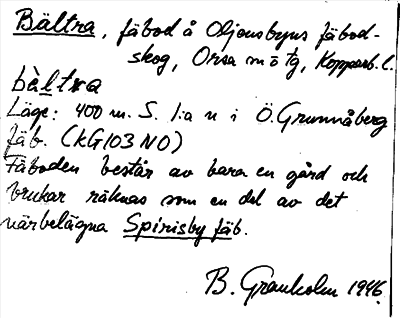 Bältra, fäbod å Oljonsbyns fäbod-
skog, Orsa m o tg, Kopparb. l.
bàltra
Läge: 400 m. S. l:a n i Ö. Grunnåberg
fäb. (KG103 NO)
Fäboden består av bara en gård och
brukar räknas som en del av det
närbelägna Spirisby fäb.
B. Granholm 1946.